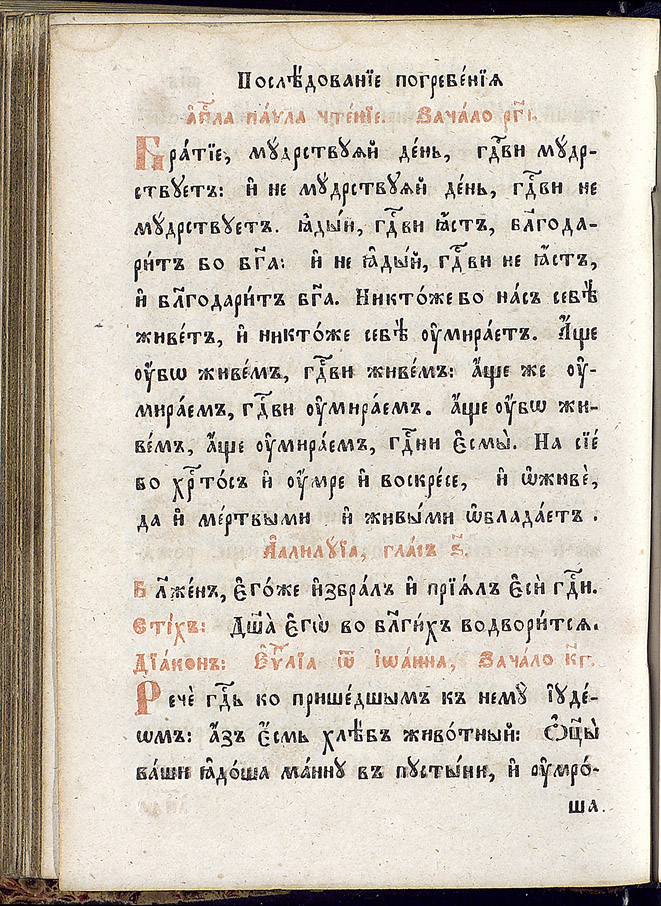 Послѣ́дованїе погребе́нїѧ
а҆пⷭ҇ла па́ѵла чте́нїе. Зача́ло рг҃і.
Бра́тїе, мꙋ́дрствꙋѧй де́нь, гдⷭ҇ви мꙋ́др-
ствꙋетъ: и҆ не мꙋ́дрствꙋѧй де́нь, гдⷭ҇ви не
мꙋ́дрствꙋетъ. ꙗ҆ды́й, гдⷭ҇ви ꙗ҆́стъ, бл҃года-
ри́тъ бо бг҃а: и҆ не ꙗ҆ды́й, гдⷭ҇ви не ꙗ҆́стъ,
и҆ бл҃годари́тъ бг҃а. Никто́же бо на́съ себѣ̀
живе́тъ, и҆ никто́же себѣ̀ ᲂу҆мира́етъ. А҆́ще
ᲂу҆́бѡ живе́мъ, гдⷭ҇ви живе́мъ: а҆́ще же ᲂу҆-
мира́емъ, гдⷭ҇ви ᲂу҆мира́емъ. а҆́ще ᲂу҆́бѡ жи-
ве́мъ, а҆́ще ᲂу҆мира́емъ, гдⷭ҇ни є҆смы̀. На сїе́
бо хрⷭ҇то́съ и҆ ᲂу҆́мре и҆ воскре́се, и҆ ѡ҆живѐ,
да и҆ ме́ртвыми и҆ живы́ми ѡ҆блада́етъ.
А҆ллилꙋ́їа, гла́съ ѕ҃.
Бл҃же́нъ, є҆го́же и҆збра́лъ и҆ прїѧ́лъ є҆сѝ гдⷭ҇и.
Сті́хъ: Дш҃а̀ є҆гѡ̀ во бл҃ги́хъ водвори́тсѧ.
Дїа́конъ: Є҆ѵⷢ҇лїа ѿ і҆ѡа́нна, Зача́ло кг҃.
Речѐ гдⷭ҇ь ко прише́дшымъ къ немꙋ̀ і҆ꙋде́-
ѡмъ: а҆́зъ є҆́смь хлѣ́бъ живо́тный: Ѻ҆ц҃ы̀
ва́ши ꙗ҆до́ша ма́ннꙋ въ пꙋсты́ни, и҆ ᲂу҆мро́-
ша.